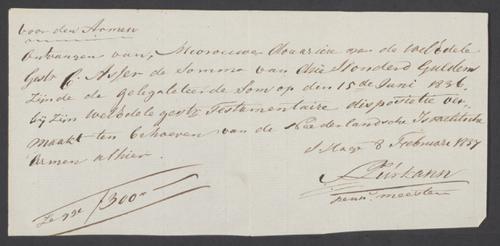 voor den Armen
Ontvangen van, Mevrouwe Douarière van de WelEdele
Gestr C: Asser de Somma van drie Honderd Guldens
zijnde de gelegateerde Som op den 15 de Juni 1836.
bij zijn WelEdele gestr Testamentaire dispositie ver-
maakt ten behoeven van de Nederlandsche Israelitische
Armen alhier.
s'Hage 8 Februarij 1837
Zegge ƒ 300„
penn: meester